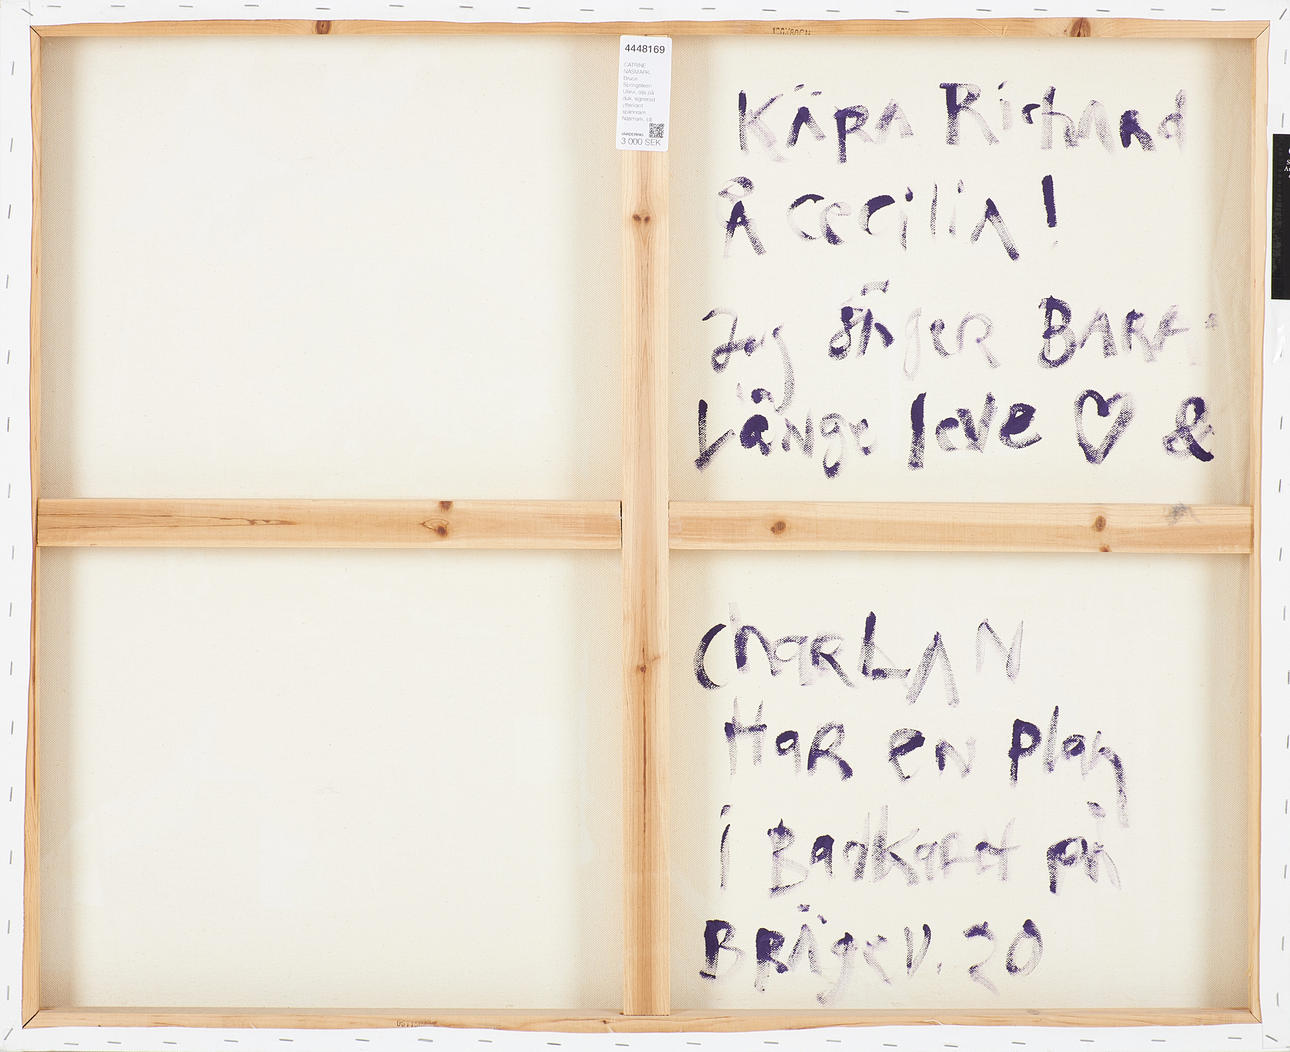 4448169
CATRINE
NÄSMARK,
Bruce
Springsteen
Ullevi, olja på
duk, signerad
spännram
Näsmark, på
VÄRDERING
3 000 SEK
Kära Richard
Å Cecilia!
Jag säger BARA:
Länge leve ♡ &
CharLAN
HaR en plan
i Badkaret på
BRÄgeV. 20